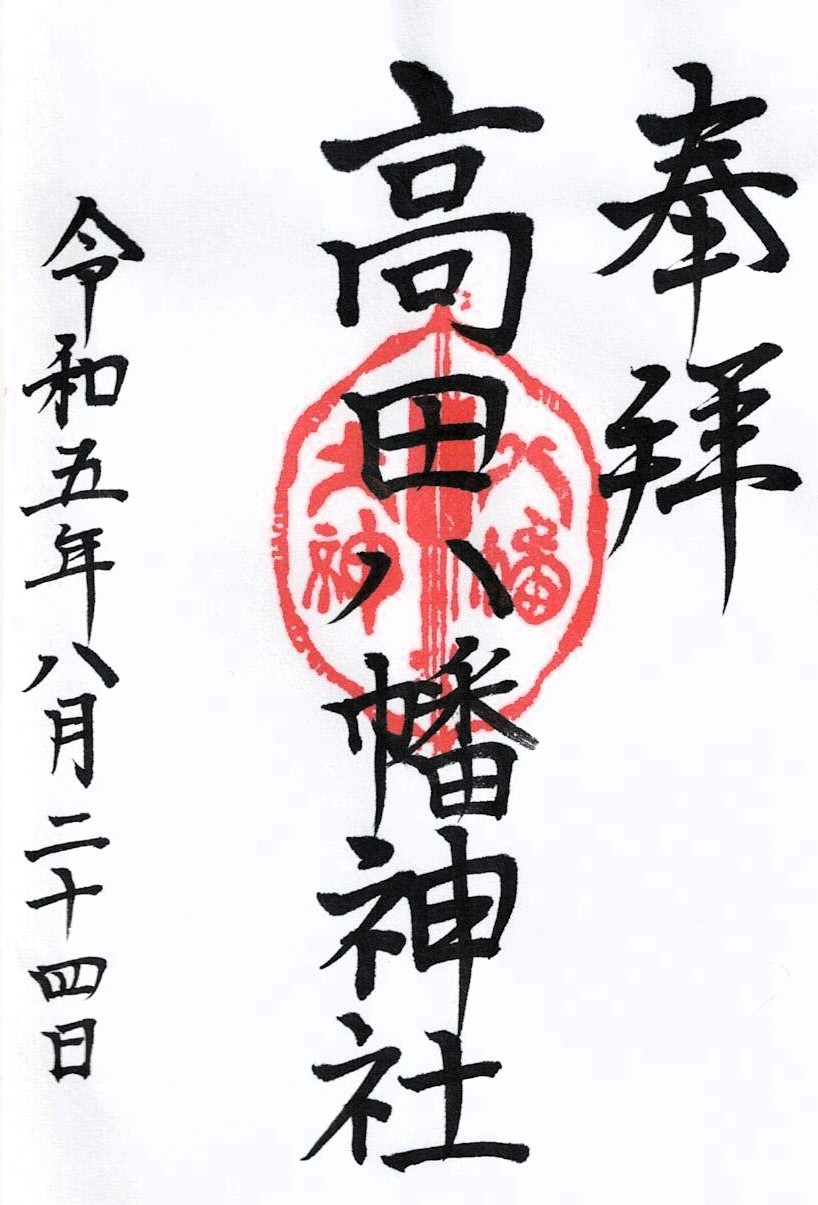 奉拝
高田八幡神社
八幡
大神
令和五年八月二十四日